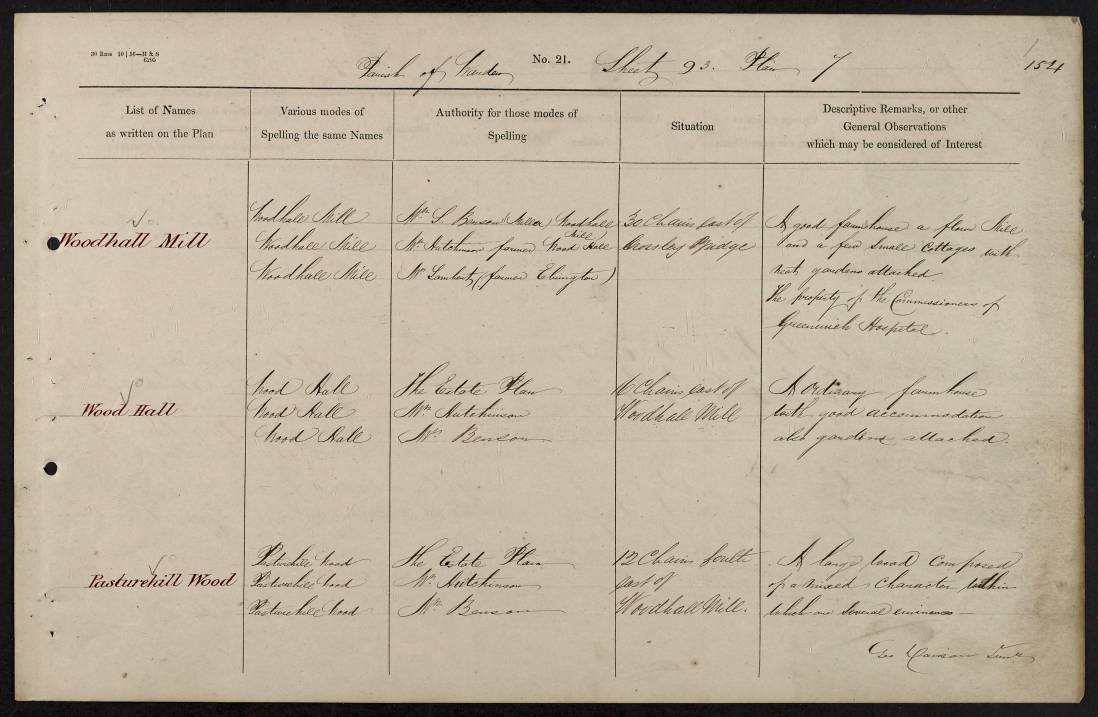 30 Rms 10 | 56—H & S
6295
Parish of Warden No. 21. Sheet 93. Plan 7 154
List of Names
as written on the Plan
Various modes of
Spelling the same Names
Authority for those modes of
Spelling
Situation
Descriptive Remarks, or other
General Observations
which may be considered of Interest
Woodhall Mill
Woodhall Mill
Woodhall Mill
Woodhall Mill
Mr. S. Benson (Miller) Woodhall Mill
Mr Hutchinson farmer Wood Hall
Mr Lambert (farmer Elrington)
30 Chains east of
Crossley Bridge
A good farmhouse a flour Mill
and a few small Cottages with
neat gardens attached.
The property of the Commissioners of
Greenwich Hospital.
Wood Hall
Wood Hall
Wood Hall
Wood Hall
The Estate Plan
Mr. Hutchinson
Mr. Benson
16 Chains east of
Woodhall Mill
A ordinary farmhouse
with good accommodation
also gardens attached.
Pasturehill Wood
Pasturehill Wood
Pasturehill Wood
Pasturehill Wood
The Estate Plan
Mr. Hutchinson
Mr. Benson
12 Chains South
East of
Woodhall Mill.
A large wood Composed
of a mixed Character within
which are several
Geo